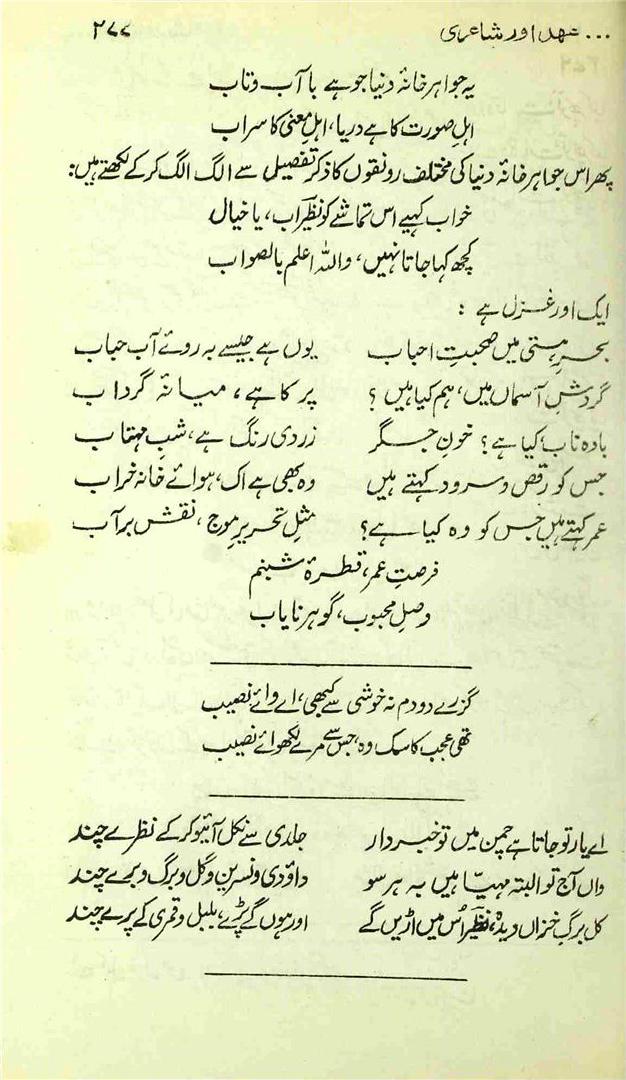 ... عہد اور شاعری ۲۷۷
یہ جواہر خانۂ دنیا جو ہے با آب و تاب
اہلِ صورت کا ہے دریا، اہلِ معنی کا سراب
پھر اس جواہر خانۂ دنیا کی مختلف رونقوں کا ذکر تفصیل سے الگ الگ کر کے لکھتے ہیں:
خواب کہیے اس تماشے کو نظیرؔ اب، یا خیال
کچھ کہا جاتا نہیں، واللہ اعلم بالصواب
ایک اور غزل ہے :
بحرِ ہستی میں صحبتِ احباب یوں ہے جیسے بہ روئے آب حباب
گردشِ آسماں میں، ہم کیا ہیں ؟ پر کاہے، میانۂ گرداب
بادہ ناب کیا ہے؟ خونِ جگر زردی رنگ ہے، شبِ مہتاب
جس کو رقص و سرود کہتے ہیں وہ بھی ہے اک ہوائے خانہ خراب
عمر کہتے ہیں جس کو وہ کیا ہے؟ مثلِ تحریرِ موج، نقش بر آب
فرصتِ عمر، قطرۂ شبنم
وصلِ محبوب، گوہرِ نایاب
گزرے دو دم نہ خوشی سے کبھی، اے وائے نصیب
تھی عجب کا سک وہ، جس سے مرے لکھوائے نصیب
اے یار تو جاتا ہے چمن میں تو خبردار جلدی سے نکل آئیو کر کے نظرے چند
واں آج تو البتہ مہیّا ہیں بہ ہر سو داؤدی و نسرین و گل و برگ و برے چند
کل برگِ خزاں دیدہ، نظیرؔ اُس میں اڑیں گے اور ہوں گے پڑے، بلبل و قمری کے پرے چند